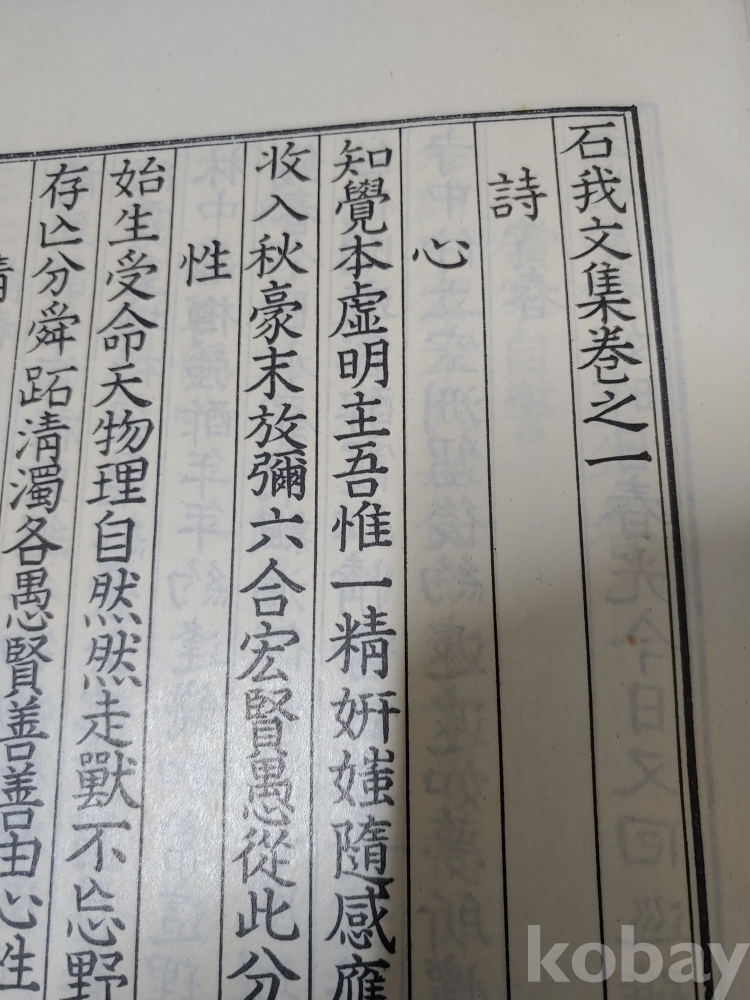 石我文集卷之一
詩
心
知覺本虛明主吾惟一精妍媸隨感應
收入秋豪末放彌六合宏賢愚從此分
性
始生受命天物理自然然走獸不忘野
存亡分舜跖清濁各愚賢善善由心性
情
kobay